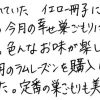 ていた イエロー冊子に
今月の幸せ巣ごもりに
色んなお味が楽し
月のラムレーズンを購入し
た。定番の巣ごもりも美